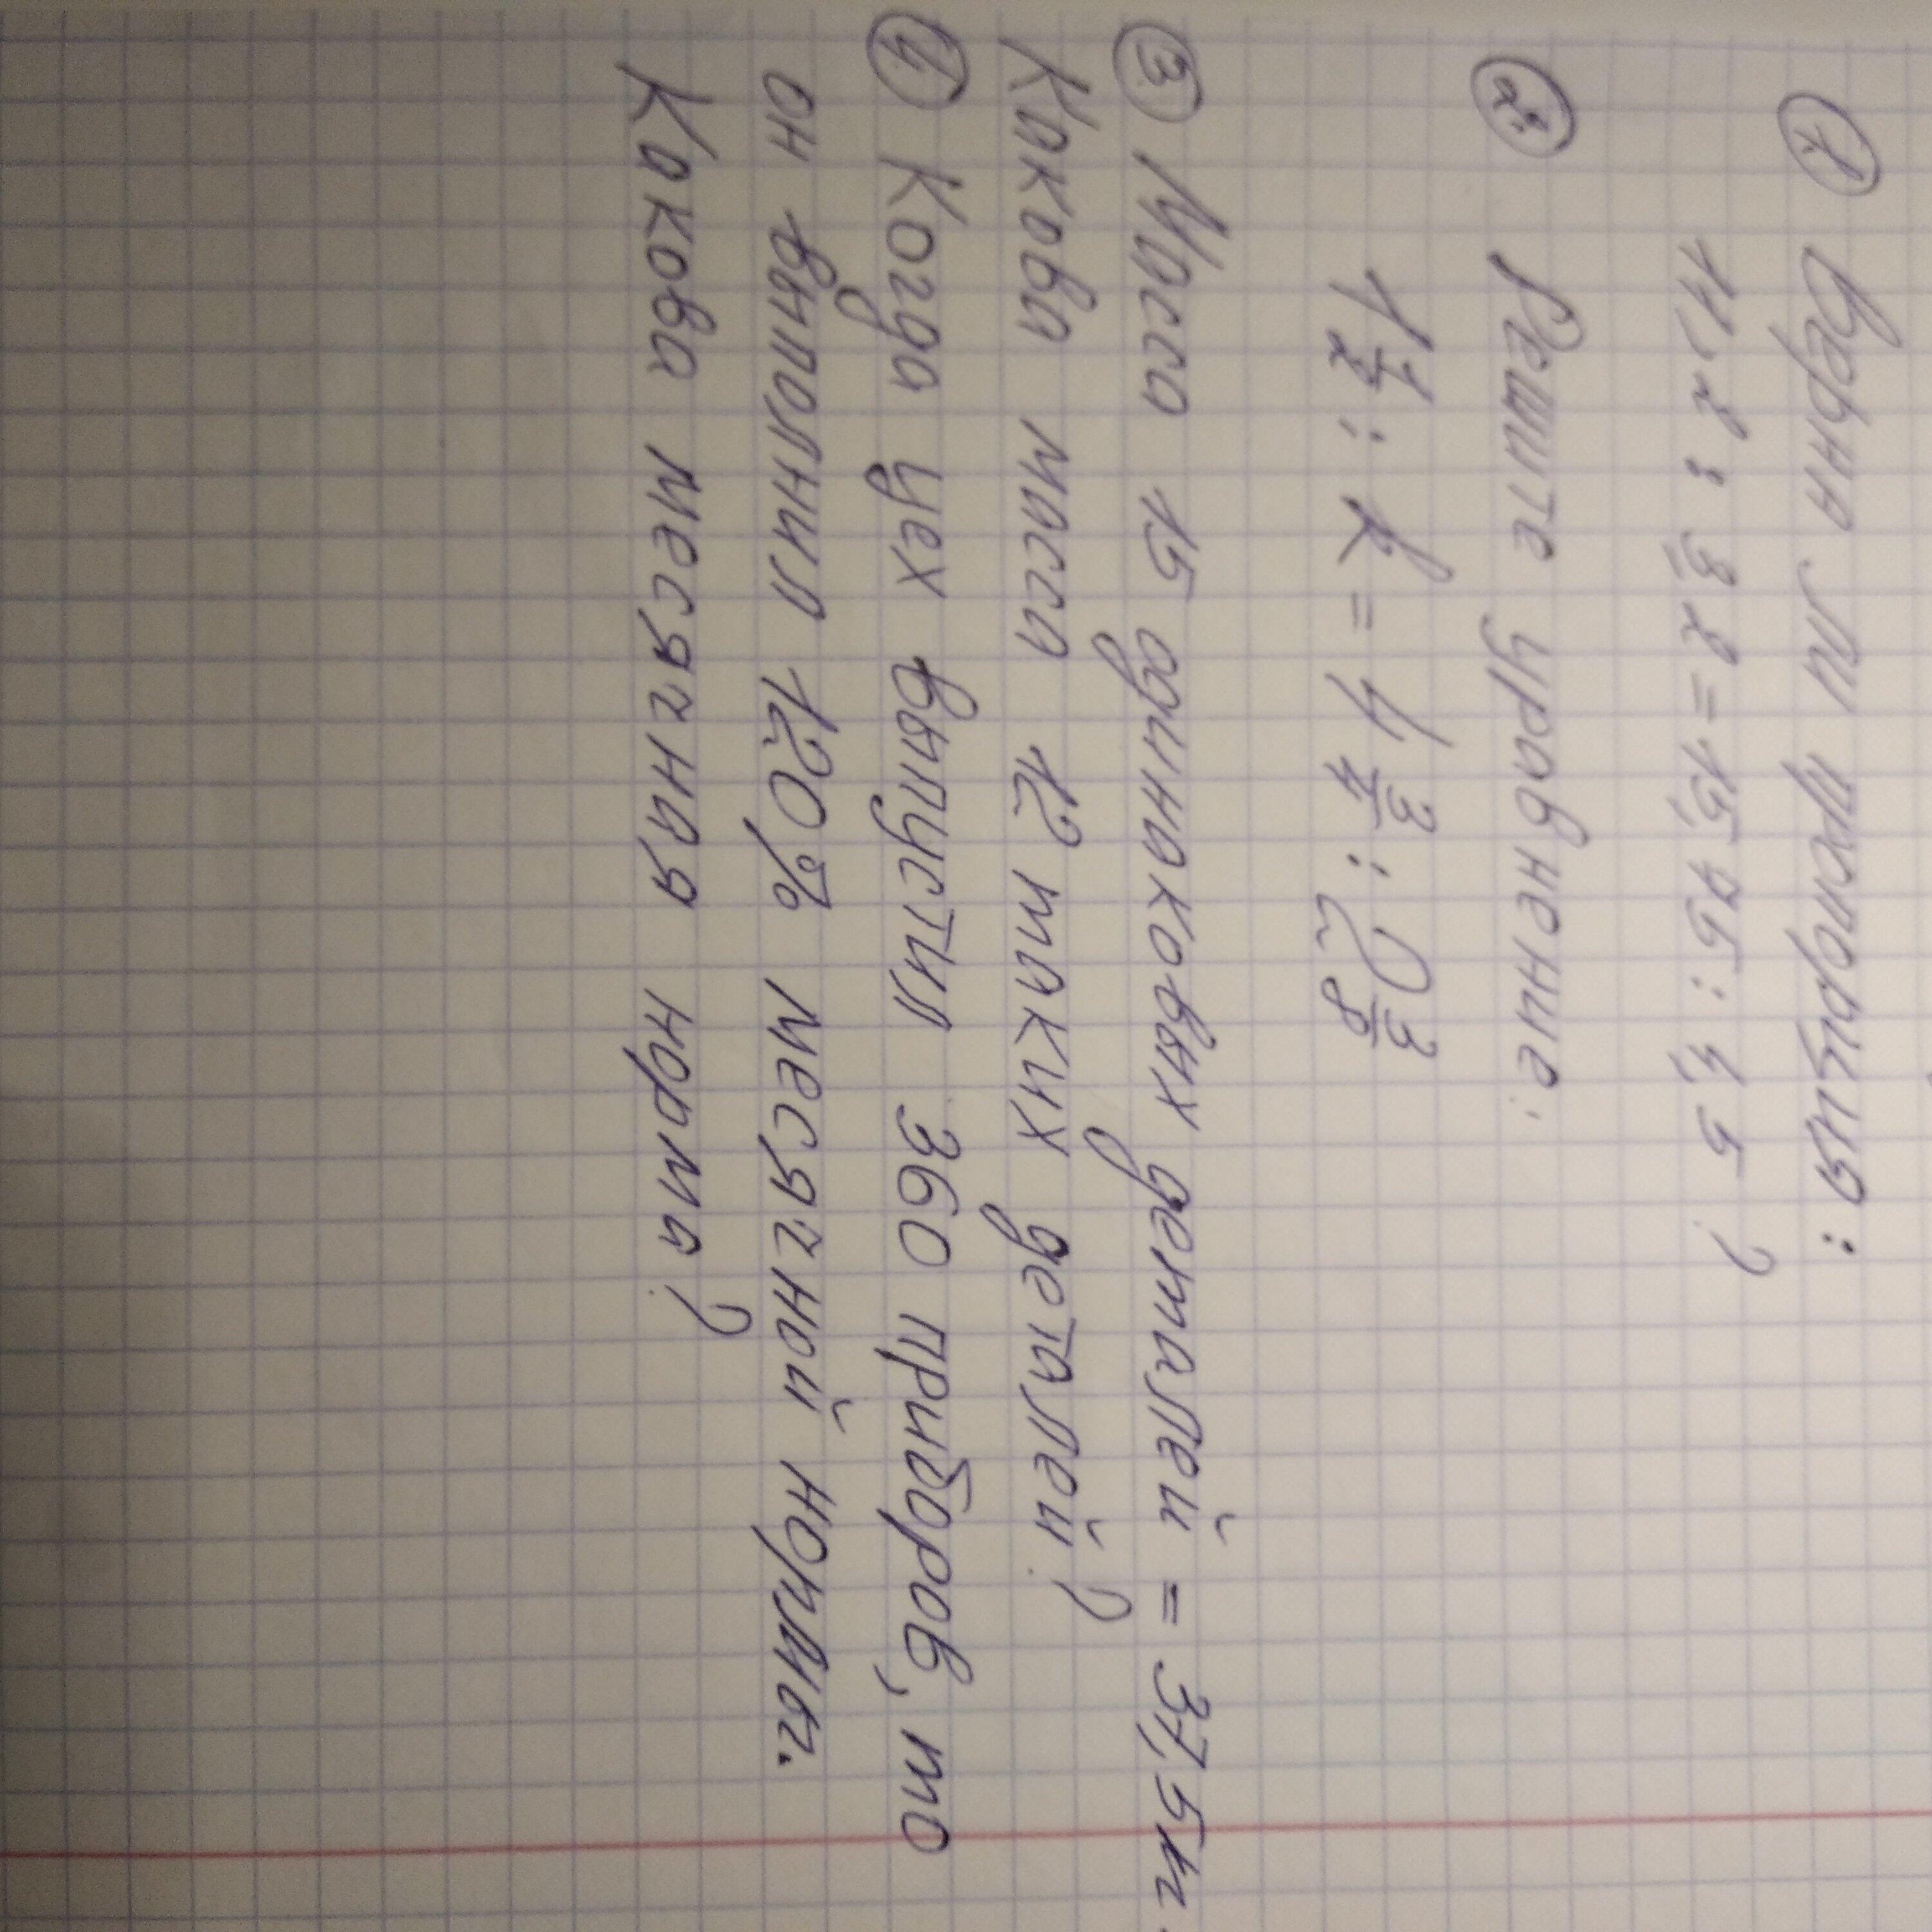 ① Верна ли пропорция:
11,2 : 3,2 = 15,75 : 4,5 ?
② Решите уравнение:
1 1/2 : x = 4 3/4 : 2 3/8
③ Масса 15 одинаковых деталей = 37,5 кг.
Какова масса 12 таких деталей?
④ Когда цех выпустил 360 приборов, то
он выполнил 120% месячной нормы.
Какова месячная норма?